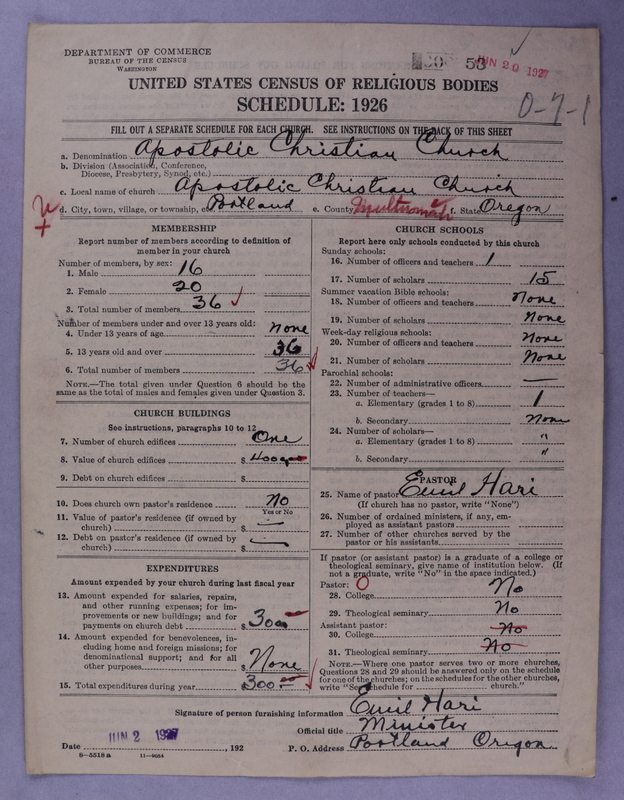 DEPARTMENT OF COMMERCE
BUREAU OF THE CENSUS
WASHINGTON
53
JUN 20 1927
UNITED STATES CENSUS OF RELIGIOUS BODIES
SCHEDULE: 1926
0-7-1
FILL OUT A SEPARATE SCHEDULE FOR EACH CHURCH. SEE INSTRUCTIONS ON THE BACK OF THIS SHEET
a. Denomination Apostolic Christian Church
b. Division (Association, Conference,
Diocese, Presbytery, Synod, etc.)
c. Local name of church Apostolic Christian Church
d. City, town, village, or township, etc. Portland e. County Multnomah f. State Oregon
MEMBERSHIP
Report number of members according to definition of
member in your church
Number of members, by sex:
1. Male 16
2. Female 20
3. Total number of members 36
Number of members under and over 13 years old:
4. Under 13 years of age None
5. 13 years old and over 36
6. Total number of members 36
NOTE.—The total given under Question 6 should be the
same as the total of males and females given under Question 3.
CHURCH BUILDINGS
See instructions, paragraphs 10 to 12
7. Number of church edifices One
8. Value of church edifices $ 4000
9. Debt on church edifices $
10. Does church own pastor's residence No
Yes or No
11. Value of pastor's residence (if owned by
church) $ —
12. Debt on pastor's residence (if owned by
church) $ —
EXPENDITURES
Amount expended by your church during last fiscal year
13. Amount expended for salaries, repairs,
and other running expenses; for im-
provements or new buildings; and for
payments on church debt $ 300
14. Amount expended for benevolences, in-
cluding home and foreign missions; for
denominational support; and for all
other purposes $ None
15. Total expenditures during year $ 300
CHURCH SCHOOLS
Report here only schools conducted by this church
Sunday schools:
16. Number of officers and teachers 1
17. Number of scholars 15
Summer vacation Bible schools:
18. Number of officers and teachers None
19. Number of scholars None
Week-day religious schools:
20. Number of officers and teachers None
21. Number of scholars None
Parochial schools:
22. Number of administrative officers —
23. Number of teachers—
a. Elementary (grades 1 to 8) 1
b. Secondary None
24. Number of scholars—
a. Elementary (grades 1 to 8) "
b. Secondary "
PASTOR
25. Name of pastor Emil Hari
(If church has no pastor, write "None")
26. Number of ordained ministers, if any, em-
ployed as assistant pastors
27. Number of other churches served by the
pastor or his assistants
If pastor (or assistant pastor) is a graduate of a college or
theological seminary, give name of institution below. (If
not a graduate, write "No" in the space indicated.)
Pastor: 0
28. College No
29. Theological seminary No
Assistant pastor:
30. College No
31. Theological seminary No
NOTE.—Where one pastor serves two or more churches,
Questions 28 and 29 should be answered only on the schedule
for one of the churches; on the schedules for the other churches,
write "See schedule for church."
Signature of person furnishing information Emil Hari
Official title Minister
Date JUN 2 1927, 192 P. O. Address Portland Oregon
8-5518a 11-9054